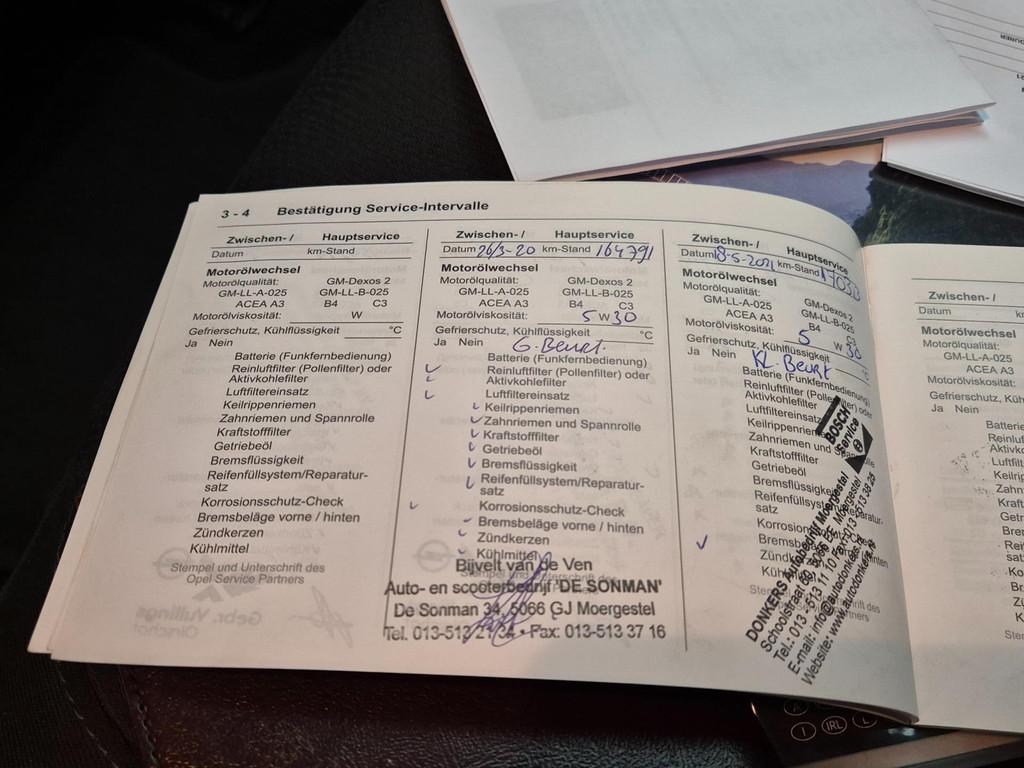 3 - 4 Bestätigung Service-Intervalle
Zwischen- / Hauptservice
Datum km-Stand
Motorölwechsel
Motorölqualität: GM-Dexos 2
GM-LL-A-025 GM-LL-B-025
ACEA A3 B4 C3
Motorölviskosität: W
Gefrierschutz, Kühlflüssigkeit °C
Ja Nein
Batterie (Funkfernbedienung)
Reinluftfilter (Pollenfilter) oder
Aktivkohlefilter
Luftfiltereinsatz
Keilrippenriemen
Zahnriemen und Spannrolle
Kraftstofffilter
Getriebeöl
Bremsflüssigkeit
Reifenfüllsystem/Reparatur-
satz
Korrosionsschutz-Check
Bremsbeläge vorne / hinten
Zündkerzen
Kühlmittel
Stempel und Unterschrift des
Opel Service Partners
Zwischen- / Hauptservice
Datum 26/3-20 km-Stand 164791
Motorölwechsel
Motorölqualität: GM-Dexos 2
GM-LL-A-025 GM-LL-B-025
ACEA A3 B4 C3
Motorölviskosität: 5 W 30
Gefrierschutz, Kühlflüssigkeit °C
Ja Nein G. Beurt.
Batterie (Funkfernbedienung)
Reinluftfilter (Pollenfilter) oder
Aktivkohlefilter
Luftfiltereinsatz
Keilrippenriemen
Zahnriemen und Spannrolle
Kraftstofffilter
Getriebeöl
Bremsflüssigkeit
Reifenfüllsystem/Reparatur-
satz
Korrosionsschutz-Check
Bremsbeläge vorne / hinten
Zündkerzen
Kühlmittel
Bijvelt van de Ven
Auto- en scooterbedrijf 'DE SONMAN'
De Sonman 34, 5066 GJ Moergestel
Tel. 013-513 21 34 - Fax: 013-513 37 16
Zwischen- / Hauptservice
Datum 18-5-2021 km-Stand
Motorölwechsel
Motorölqualität: GM-Dexos 2
GM-LL-A-025 GM-LL-B-025
ACEA A3 B4 C3
Motorölviskosität: 5 W 30
Gefrierschutz, Kühlflüssigkeit °C
Ja Nein KL. Beurt
Batterie (Funkfernbedienung)
Reinluftfilter (Pollenfilter) oder
Aktivkohlefilter
Luftfiltereinsatz
Keilrippenriemen
Zahnriemen und Spannrolle
Kraftstofffilter
Getriebeöl
Bremsflüssigkeit
Reifenfüllsystem/Reparatur-
satz
BOSCH
Service
DONKERS Autobedrijf Moergestel
Schoolstraat 60, 5066 EE Moergestel
Tel.: 013 - 513 11 10 Fax: 013 - 513 38 25
E-mail: info@autodonkers.nl
Website: www.autodonkers.nl
Zwischen- /
Datum
Motorölwechsel
Motorölqualität:
GM-LL-A-025
ACEA A3
Motorölviskosität:
Ja Nein
I IRL L